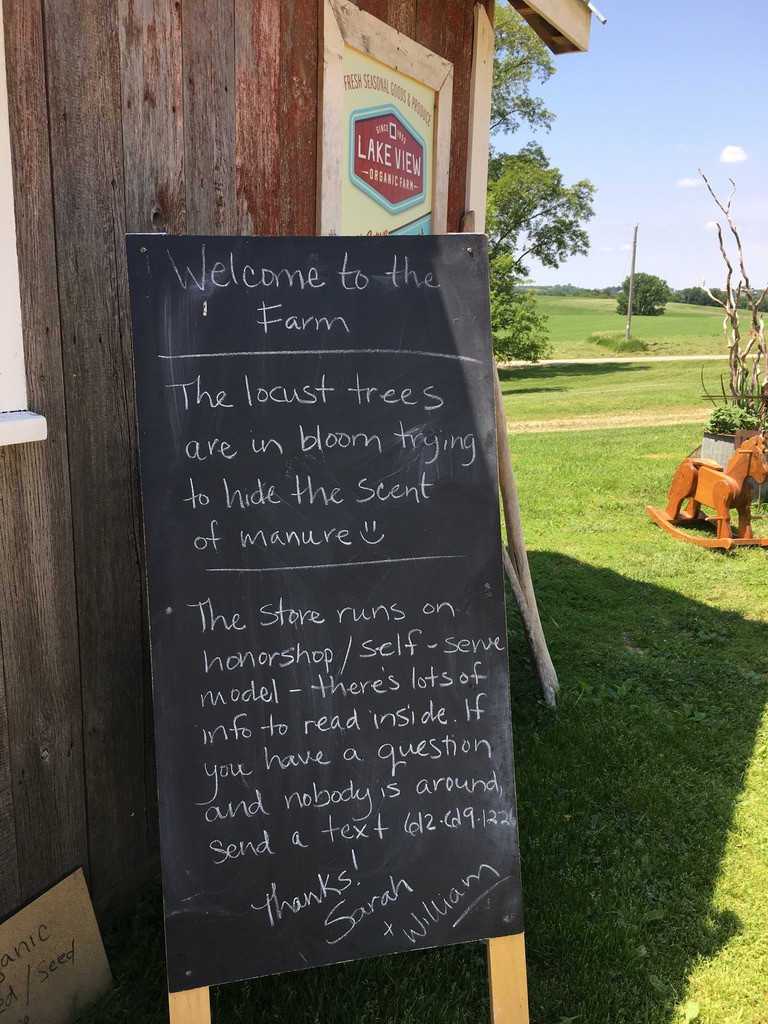 FRESH SEASONAL GOODS & PRODUCE
SINCE
LAKE VIEW
ORGANIC FARM
Welcome to the
Farm
The locust trees
are in bloom trying
to hide the scent
of manure
The store runs on
honorshop/self-serve
model - there's lots of
info to read inside. If
you have a question
and nobody is around,
send a text 612-619-122
Thanks!
Sarah
+ William
/ Seed